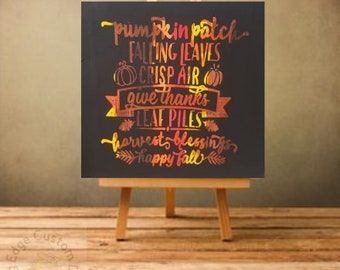 pumpkin patch
FALLING LEAVES
CRISP AIR
give thanks
LEAF PILES
harvest blessings
happy fall
Edge Custom